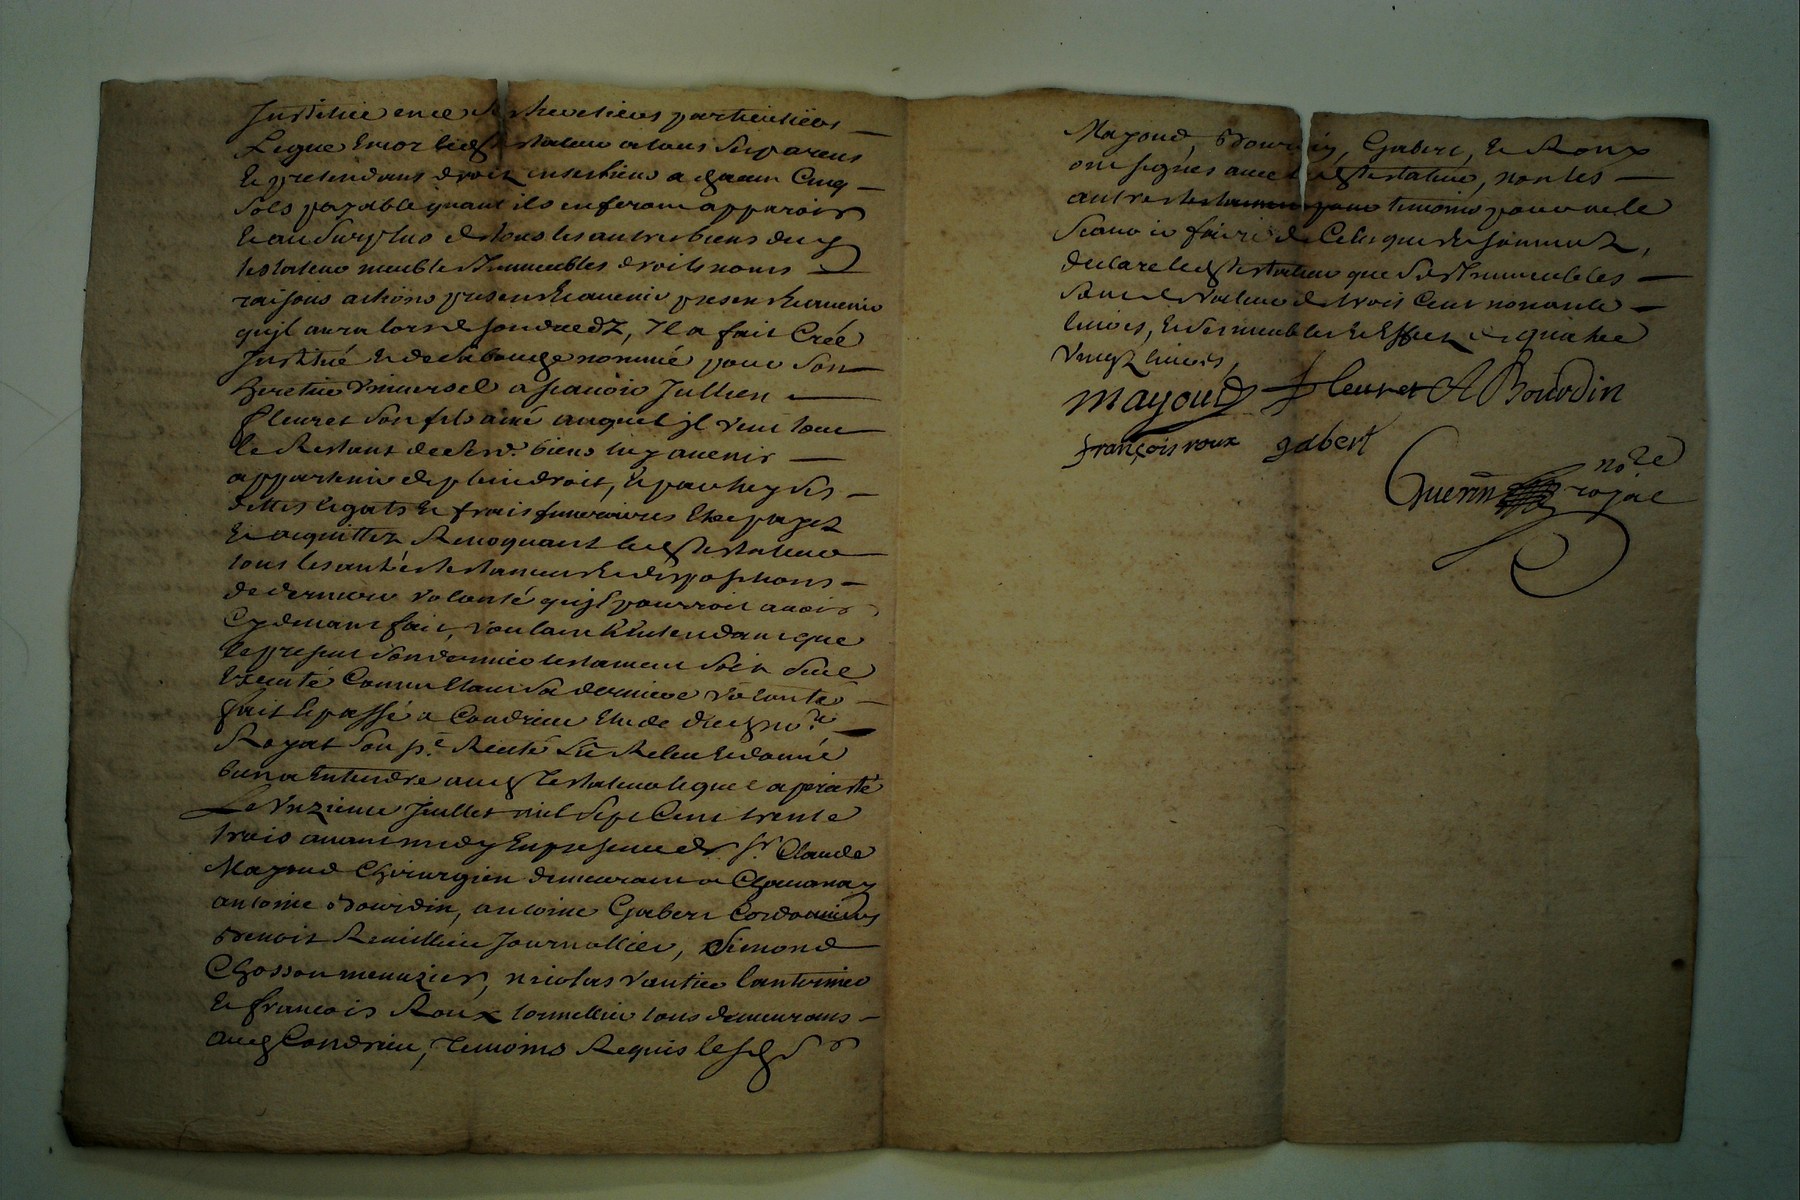 Institué en ce ses heretiers particulliers
Legue encor ledt testateur a tous ses parens
et pretendans droit en ses biens a chacun Cinq
sols payable quant ils en feront apparoir
et au surplus de tous les autres biens dud
testateur meubles Immeubles droits noms
raisons actions presens et auenir
qu'jl aura lors de son decedz, Il a fait Créé
Institué et de sa bouche nommé pour son
heretier Vniuersel a scauoir Jullien
fleuret son fils ainé auquel jl veut tout
le Restant de sesd. biens luy auenir
appartenir de plein droit, et par luy ses
dettes legats et frais funeraires Etre payez
et acquittez Reuoquant ledt testateur
tous les autres testamens et dispositions
de derniere volonté qu'jl pourroit auoir
Cy deuant fait, voulant et entendant que
le present son dernier testament soit seul
Executé Comme Etant sa derniere volonté
fait et passé a Condrieu Etude dudt nore
Royal sousse Recité Lû Releu et donné
bien a Entendre audt Testateur lequel a persisté
Le Vnzieme Juillet mil sept Cent trente
trois auant midy En presence de sr Claude
Mayoud Chirurgien demeurant a Chauanay
antoine Bourdin, antoine Gabert Cordonniers
Benoit Reuillieu Journallier, Simond
Chosson menuzier, nicolas
et francois Roux tonnellier tous demeurans
audt Condrieu, Temoins Requis lesd srs
Mayoud, Bourdin, Gabert, et Roux
ont signés auec ledt testateur, non les
autres temoins pour ne le
scauoir faire de Ce Enquis et sommez,
declare ledt testateur que ses Immeubles
sont de Valeur de trois Cent nonante
liures, et ses meubles et Effets de quatre
vingt liures,
mayoud fleuret A Bourdin
françois roux gabert
Guerin nore
royal